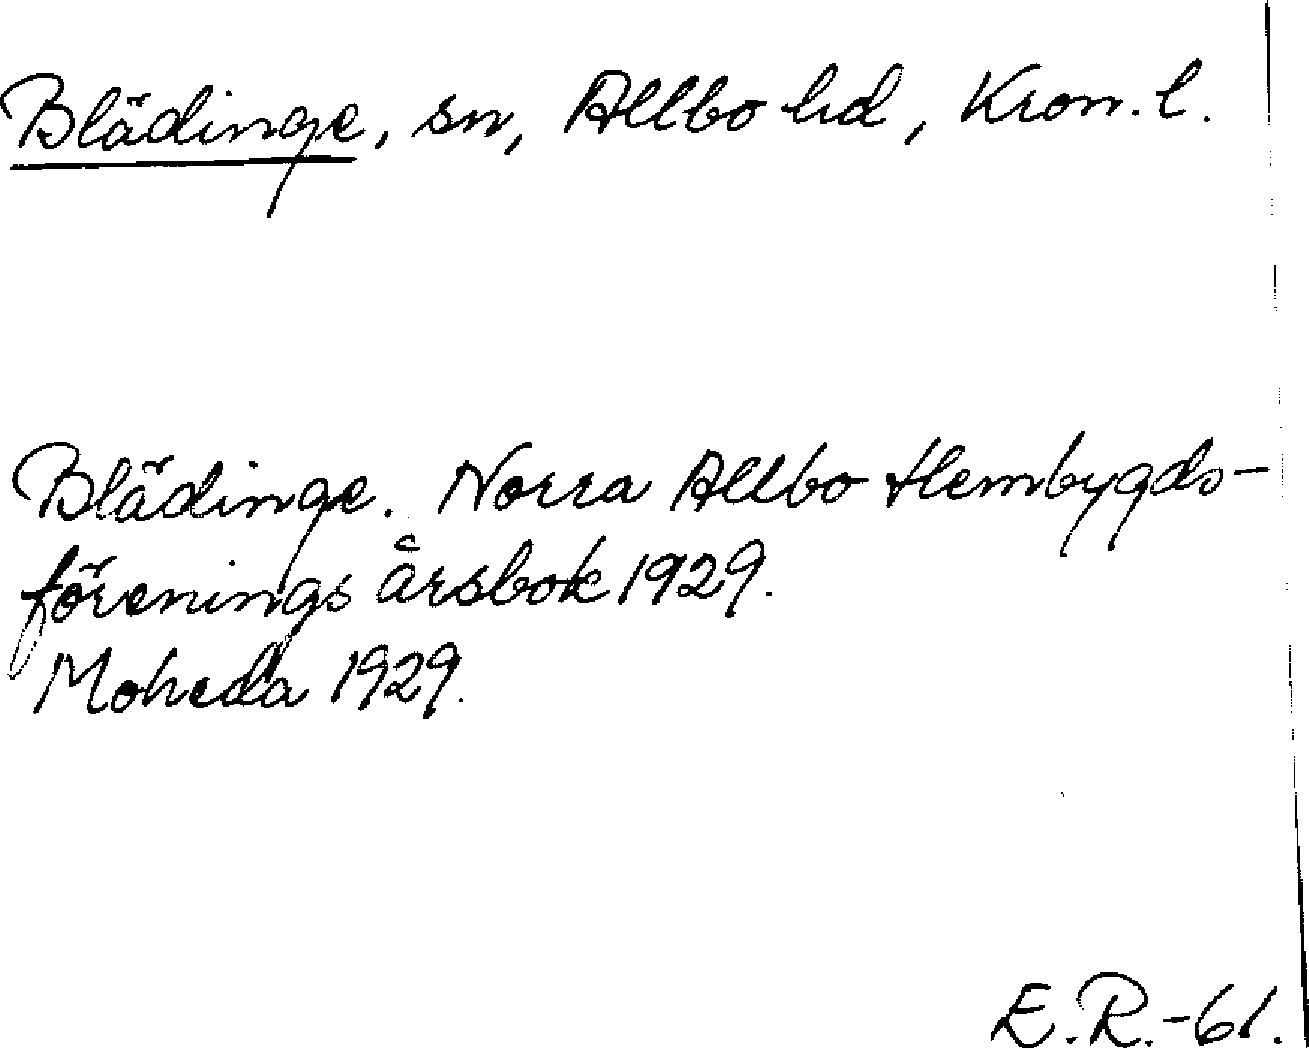 Blädinge, sn, Allbo hd, Kron. l.
Blädinge. Norra Allbo Hembygds-
förenings årsbok 1929.
Moheda 1929.
E.R.-61.